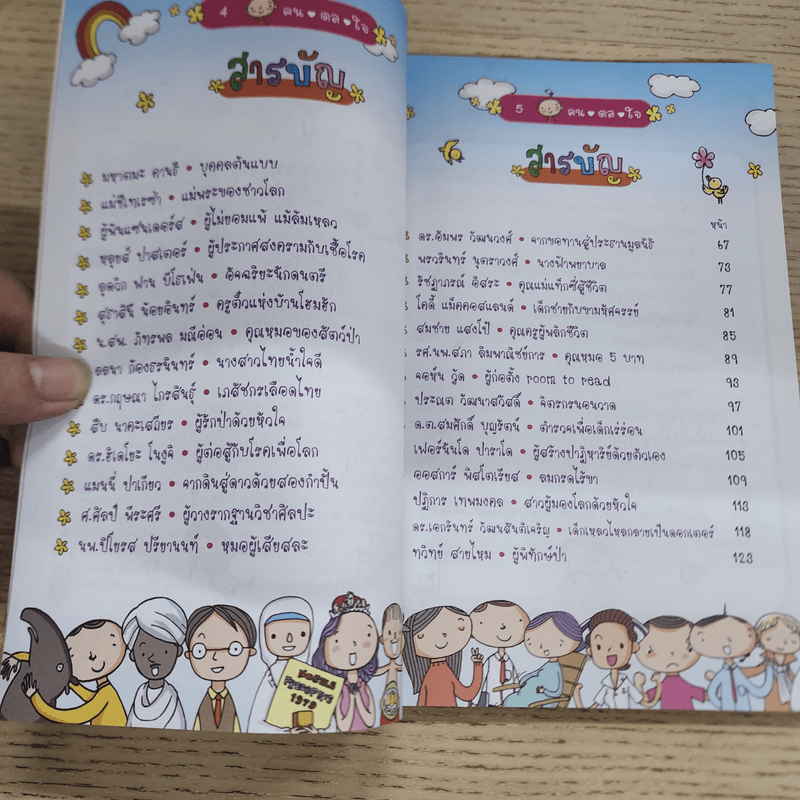 4 คน♥ดล♥ใจ
สารบัญ
มหาตมะ คานธี • บุคคลต้นแบบ
แม่ชีเทเรซ่า • แม่พระของชาวโลก
ผู้พันแซนเดอร์ส • ผู้ไม่ยอมแพ้ แม้ล้มเหลว
หลุยส์ ปาสเตอร์ • ผู้ประกาศสงครามกับเชื้อโรค
ลุดวิก ฟาน บีโธเฟ่น • อัจฉริยะนักดนตรี
สุธาสินี น้อยอินทร์ • ครูติ๋วแห่งบ้านโฮมฮัก
น.สพ. ภัทรพล มณีอ่อน • คุณหมอของสัตว์ป่า
ลลนา ก้องธรนินทร์ • นางสาวไทยน้ำใจดี
ดร.กฤษณา ไกรสินธุ์ • เภสัชกรเลือดไทย
สืบ นาคะเสถียร • ผู้รักป่าด้วยหัวใจ
ดร.ฮิเดโยะ โนงูจิ • ผู้ต่อสู้กับโรคเพื่อโลก
แมนนี่ ปาเกียว • จากดินสู่ดาวด้วยสองกำปั้น
ศ.ศิลป์ พีระศรี • ผู้วางรากฐานวิชาศิลปะ
นพ.ปิโยรส ปรียานนท์ • หมอผู้เสียสละ
5 คน♥ดล♥ใจ
สารบัญ
หน้า
ดร.อัมพร วัฒนวงศ์ • จากขอทานสู่ประธานมูลนิธิ 67
พรวรินทร์ นุตราวงศ์ • นางฟ้าพยาบาล 73
รัชฎาภรณ์ อิสระ • คุณแม่แท็กซี่สู้ชีวิต 77
โคดี้ แม็คคอสแลนด์ • เด็กชายกับขามหัศจรรย์ 81
สมชาย แสงโป๊ • คุณครูผู้พลิกชีวิต 85
รศ.นพ.สภา ลิมพาณิชย์การ • คุณหมอ 5 บาท 89
จอห์น วู้ด • ผู้ก่อตั้ง room to read 93
ประณต วัฒนาสวัสดิ์ • จิตรกรนอนวาด 97
ด.ต.สมศักดิ์ บุญรัตน์ • ตำรวจเพื่อเด็กเร่ร่อน 101
เฟอร์นันโด ปาราโด • ผู้สร้างปาฏิหาริย์ด้วยตัวเอง 105
ออสการ์ พิสโตเรียส • ลมกรดไร้ขา 109
ปฏิการ เทพมงคล • สาวผู้มองโลกด้วยหัวใจ 113
ดร.เอกรินทร์ วัฒนสันติเจริญ • เด็กเหลวไหลกลายเป็นดอกเตอร์ 118
ทวิทย์ สายไหม • ผู้พิทักษ์ป่า 123
1979